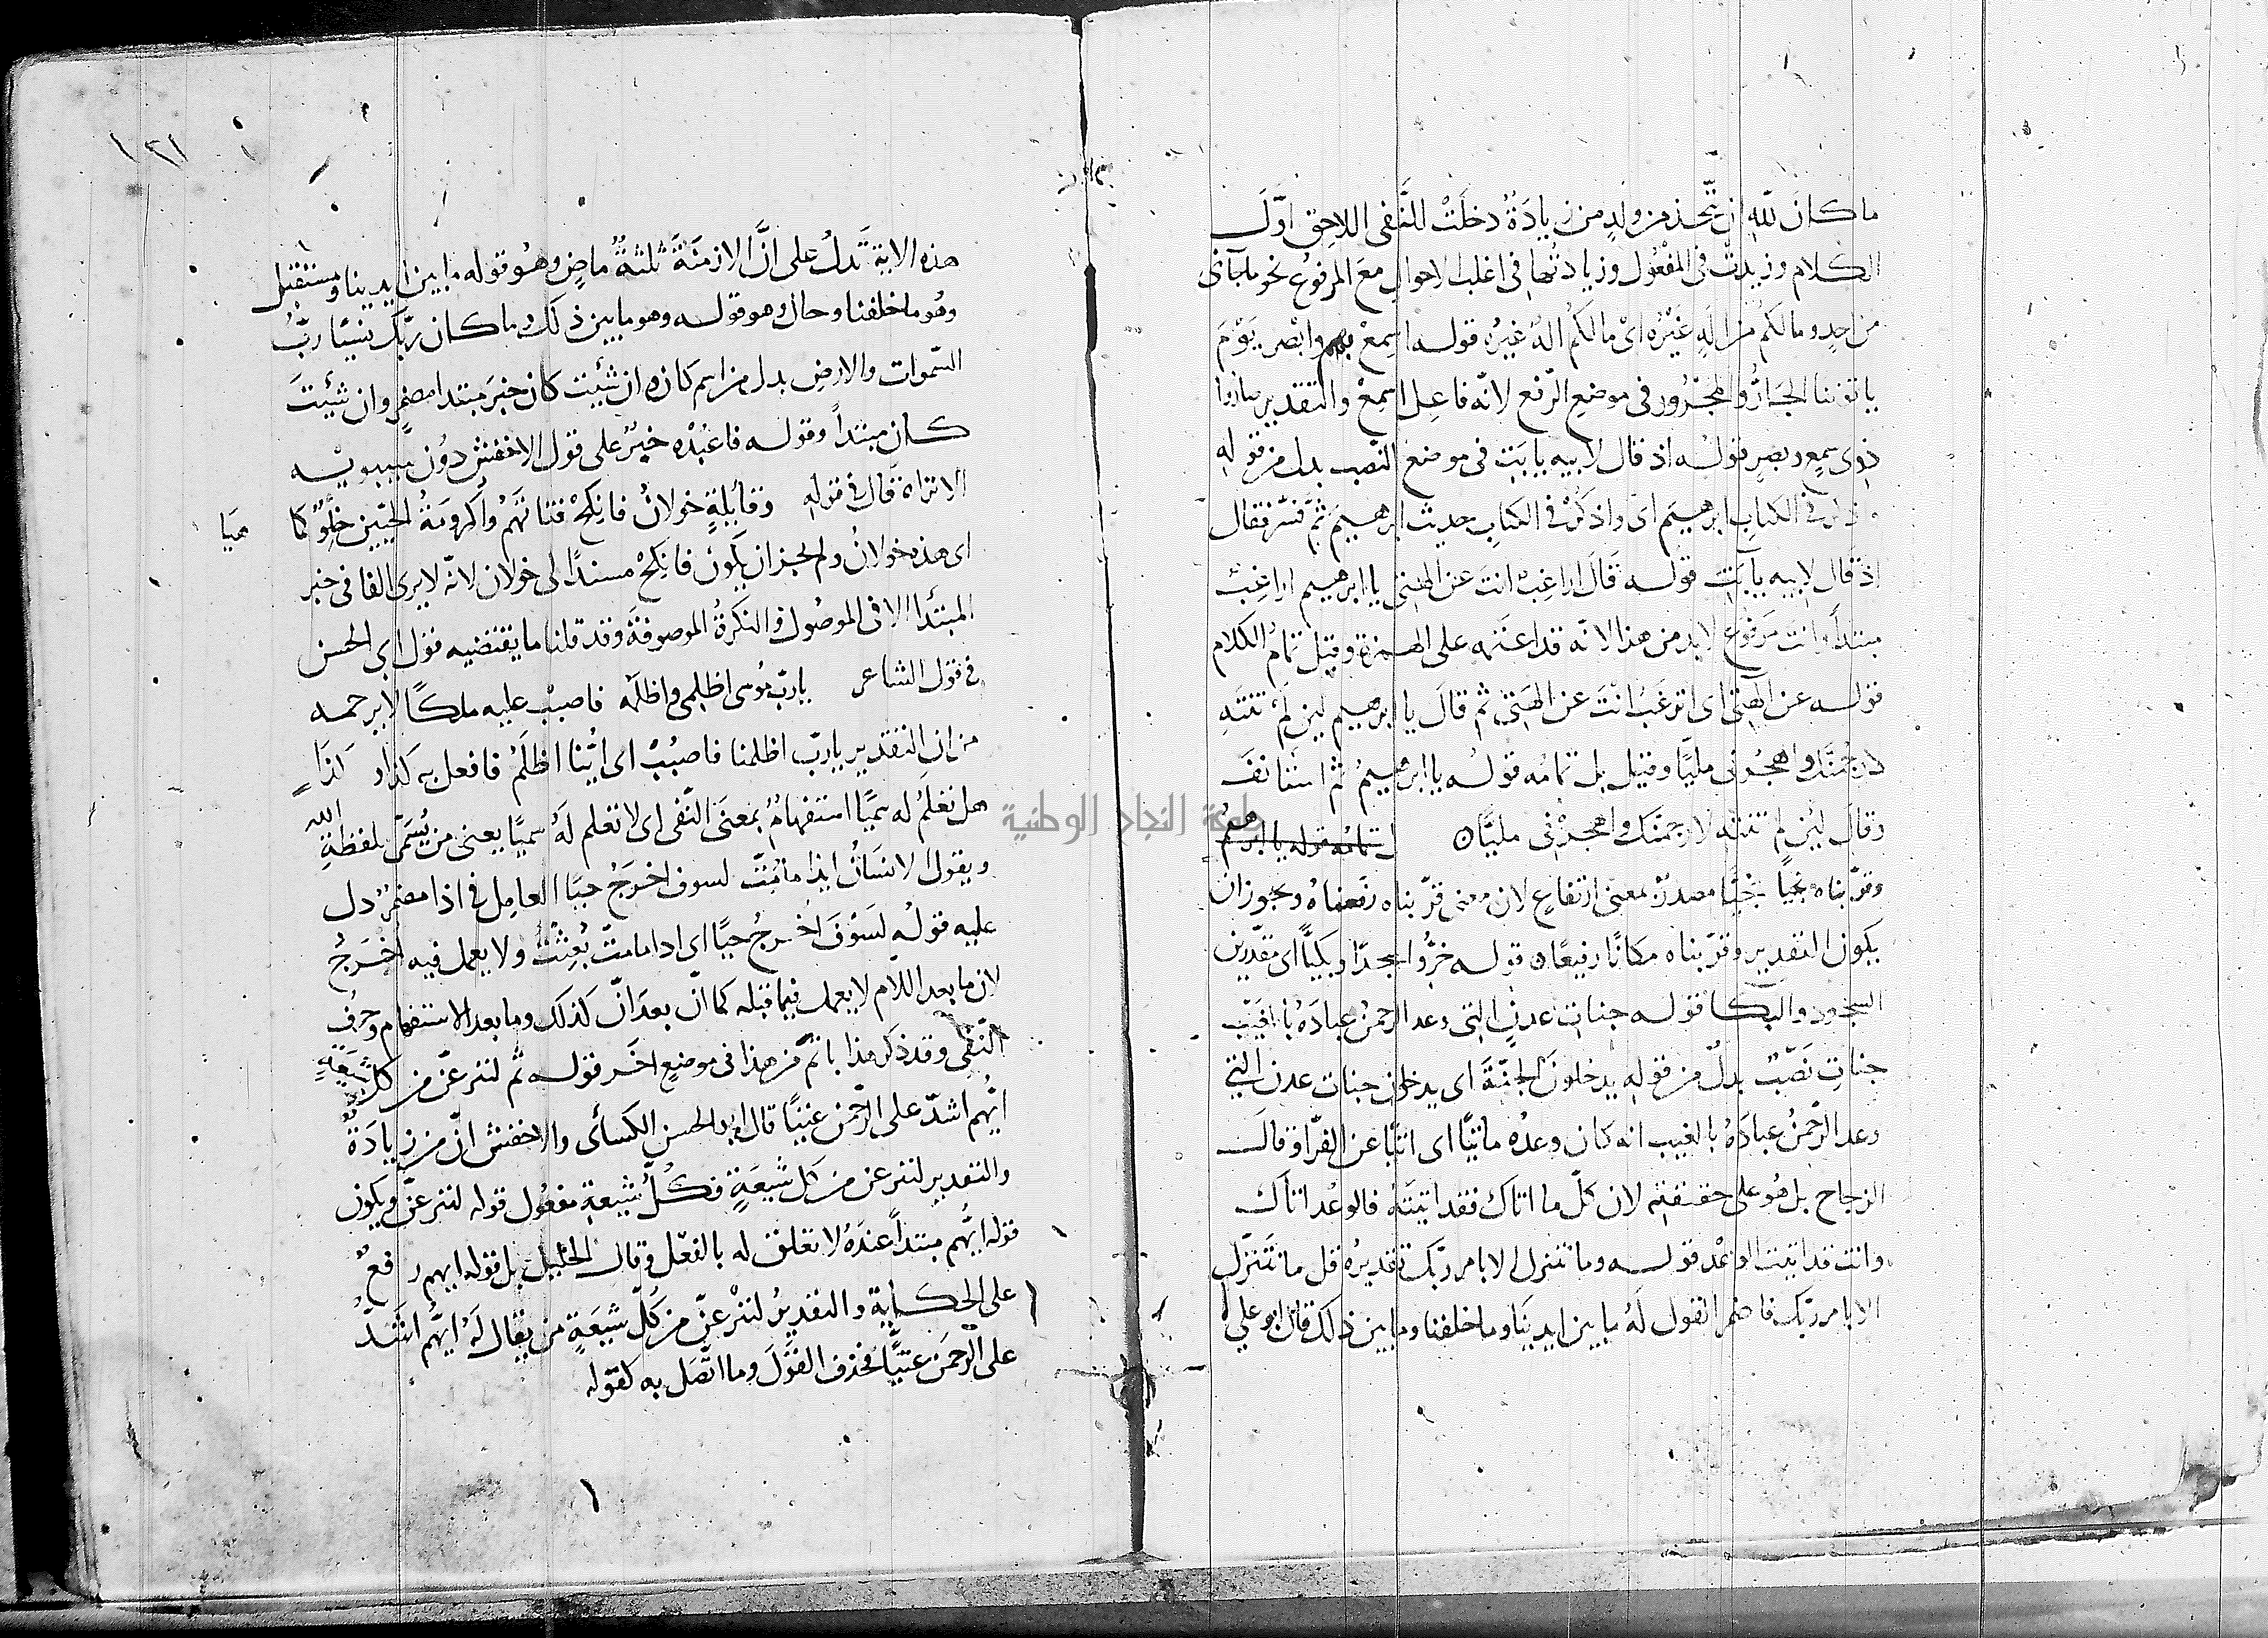 ما كان لله ان يتّخذ من ولدٍ من زيادَةُ دخلَتْ للنَّفى اللاحِق اوّلَ
الكلام وزيدتْ فى المفعُول وزيادتُها فى اغلب الاحوال معَ المرفوُع نحو ما جآنى
من احدٍ وما لكم من الهٍ غَيْرُه اىْ ما لكم الهٌ غيرُه قوله اسمِعْ بهم وابْصر يَوْمَ
ياتوننا الجَارُّ والمجْرُور فى موضعِ الرّفع لانّه فاعِل اسمِعْ والتقدير صاروا
ذوى سمعٍ وبصرٍ قولُه اذ قال لابيه يا بَتِ فى موضع النّصب بدل من قولهِ
واذكر فى الكتاب ابرهيم اى واذكُرْ فى الكتاب حديث ابرهيمَ ثمَّ فسّر فقال
اذ قال لابيه يا بَتِ قوله قَالَ اراغِبٌ انتَ عن الهتى يا ابرهيم اراغِبٌ
مبتدأ وانت مَرفوُع لا بد من هذا لانّه قد اعتمد على الهمزة وقيل تمامُ الكلام
قوله عن الهتى اى اترغَبُ انْتَ عن الهَتى ثم قالَ يا ابرهيم لين لَمْ تنتهِ
لارجُمنّكَ واهجُرنى مليّا وقيل بل تمامُه قولُه يا ابرهيمُ ثمَّ استَانفَ
وقالَ ليْن لم تنته لارجمنّك واهجرْنى مليًّا ه ل تمامُه قوله يا ابرهيمُ
وقرّبناه نجيا نجيًّا مصدرٌ بمعنى ارتفاعٍ لان معنى قرّبناه رفَعناهُ ويجوز ان
يكون التقدير وقرّبناه مكانًا رفيعًا ه قوله خرُّوا سجدًا وبكيًّا اى مقدّرين
السجود والبكا قوله جنات عدنٍ التى وعد الرحمنُ عبادَهُ بالغيب
جناتِ نَصْبٌ بدلٌ من قولهِ يدخلونَ الجنّةَ اى يدخلون جنات عدن التى
وعد الرّحمنُ عبادَهُ بالغيب انه كان وعدُه ماتيًّا اى اتيًا عن الفرّا وقالَ
الزجاج بل هُو على حقيقته لان كلّ ما اتاكَ فقد اتيتَهُ فالوعْد اتاكَ
وانت قد اتيتَ الوعْد قوله وما نتنزل الا بامر ربّكَ تقديرُه قل ما نتَنزّل
الا بامر ربّكَ فاضمر القول لَهُ ما بين ايدينَا وما خلفنا وما بين ذلك قال ابو على
١٢١
هذه الاية تَدلُ على انَّ الازمنَةَ ثلثةٌ ماضٍ وهُو قوله ما بين ايدينا ومستقبل
وهُو ما خلفنا وحال وهو قوله وهو ما بين ذلك وما كان ربّك نسيًّا ربُّ
السّموات والارضِ بدل من اسم كان ه ان شئيت كان خبَر مبتدا مضمرٍ وان شئيتَ
كان مبتدأً وقوله فاعْبُدْه خبرٌ على قول الاخفش دوُن سيبويْه
الا تراه قال فى قوله وقائلةٍ خولانُ فانكِحْ فتاتهُمْ واكرومَةُ الحيّين خِلوٌ كما هيَا
اى هذه خولانُ ولم يجز ان يكون فانكِحْ مسندًا الى خولان لانّه لا يرى الفا فى خبر
المبتدأ الا فى الموصُول والنكرةُ الموصوفَةَ وقد قلنا ما يقتضيه قول ابى الحسن
فى قول الشاعر يا ربّ موسى اظلمى واظلمُه فاصبُب عليه ملكًا لا يرحمه
من ان التقدير يا ربّ اظلمنا فاصبُبْ اى ايّنا اظلَمُ فافعل به كذا وكذا
هل تعلمُ له سميًا استفهامٌ بمعنَى النّفى اى لا تعلم لَهُ سميًا يعنى من يُسَمَّى بلفظةِ الله
ويقول الانسَانُ ايذا ما متُّ لسوف اخرَجُ حيًا العامِل فى اذا مضمرٌ دل
عليه قولُه لسَوْفَ اخرجُ حيًّا اى اذا ما متّ بُعِثْتُ ولا يعمل فيه اخرَجُ
لان ما بعد اللّام لا يعمل فيما قبله كما انّ بعدَ انّ كذلك وما بعد الاستفهام وحرُف
النّفى وقد ذكر هذا باتمَّ من هذا فى موضعٍ اخر قوله ثم لننزعنّ من كلّ شيعةٍ
ايُّهم اشدّ على الرّحمن عتيًّا قال ابو الحسن الكسائى والاخفش انّ من زيادَةٌ
والتقدير لننزعن من كل شيعَةٍ فكُلّ شيعةٍ مفعُول قوله لننزعنَّ ويكون
قوله ايُّهم مبتدأً عندَهُ لا تعلق له بالفعل وقال الخليل بل قوله ايهم رفعٌ
على الحكاية والتقديرُ لننزْعنّ من كلّ شيعَةٍ من يقال لَهُ ايُّهم اشَدُّ
على الرّحمن عتيًّا فحذف القَوْلَ وما اتّصَل به كقوله
جامعة النجاح الوطنية